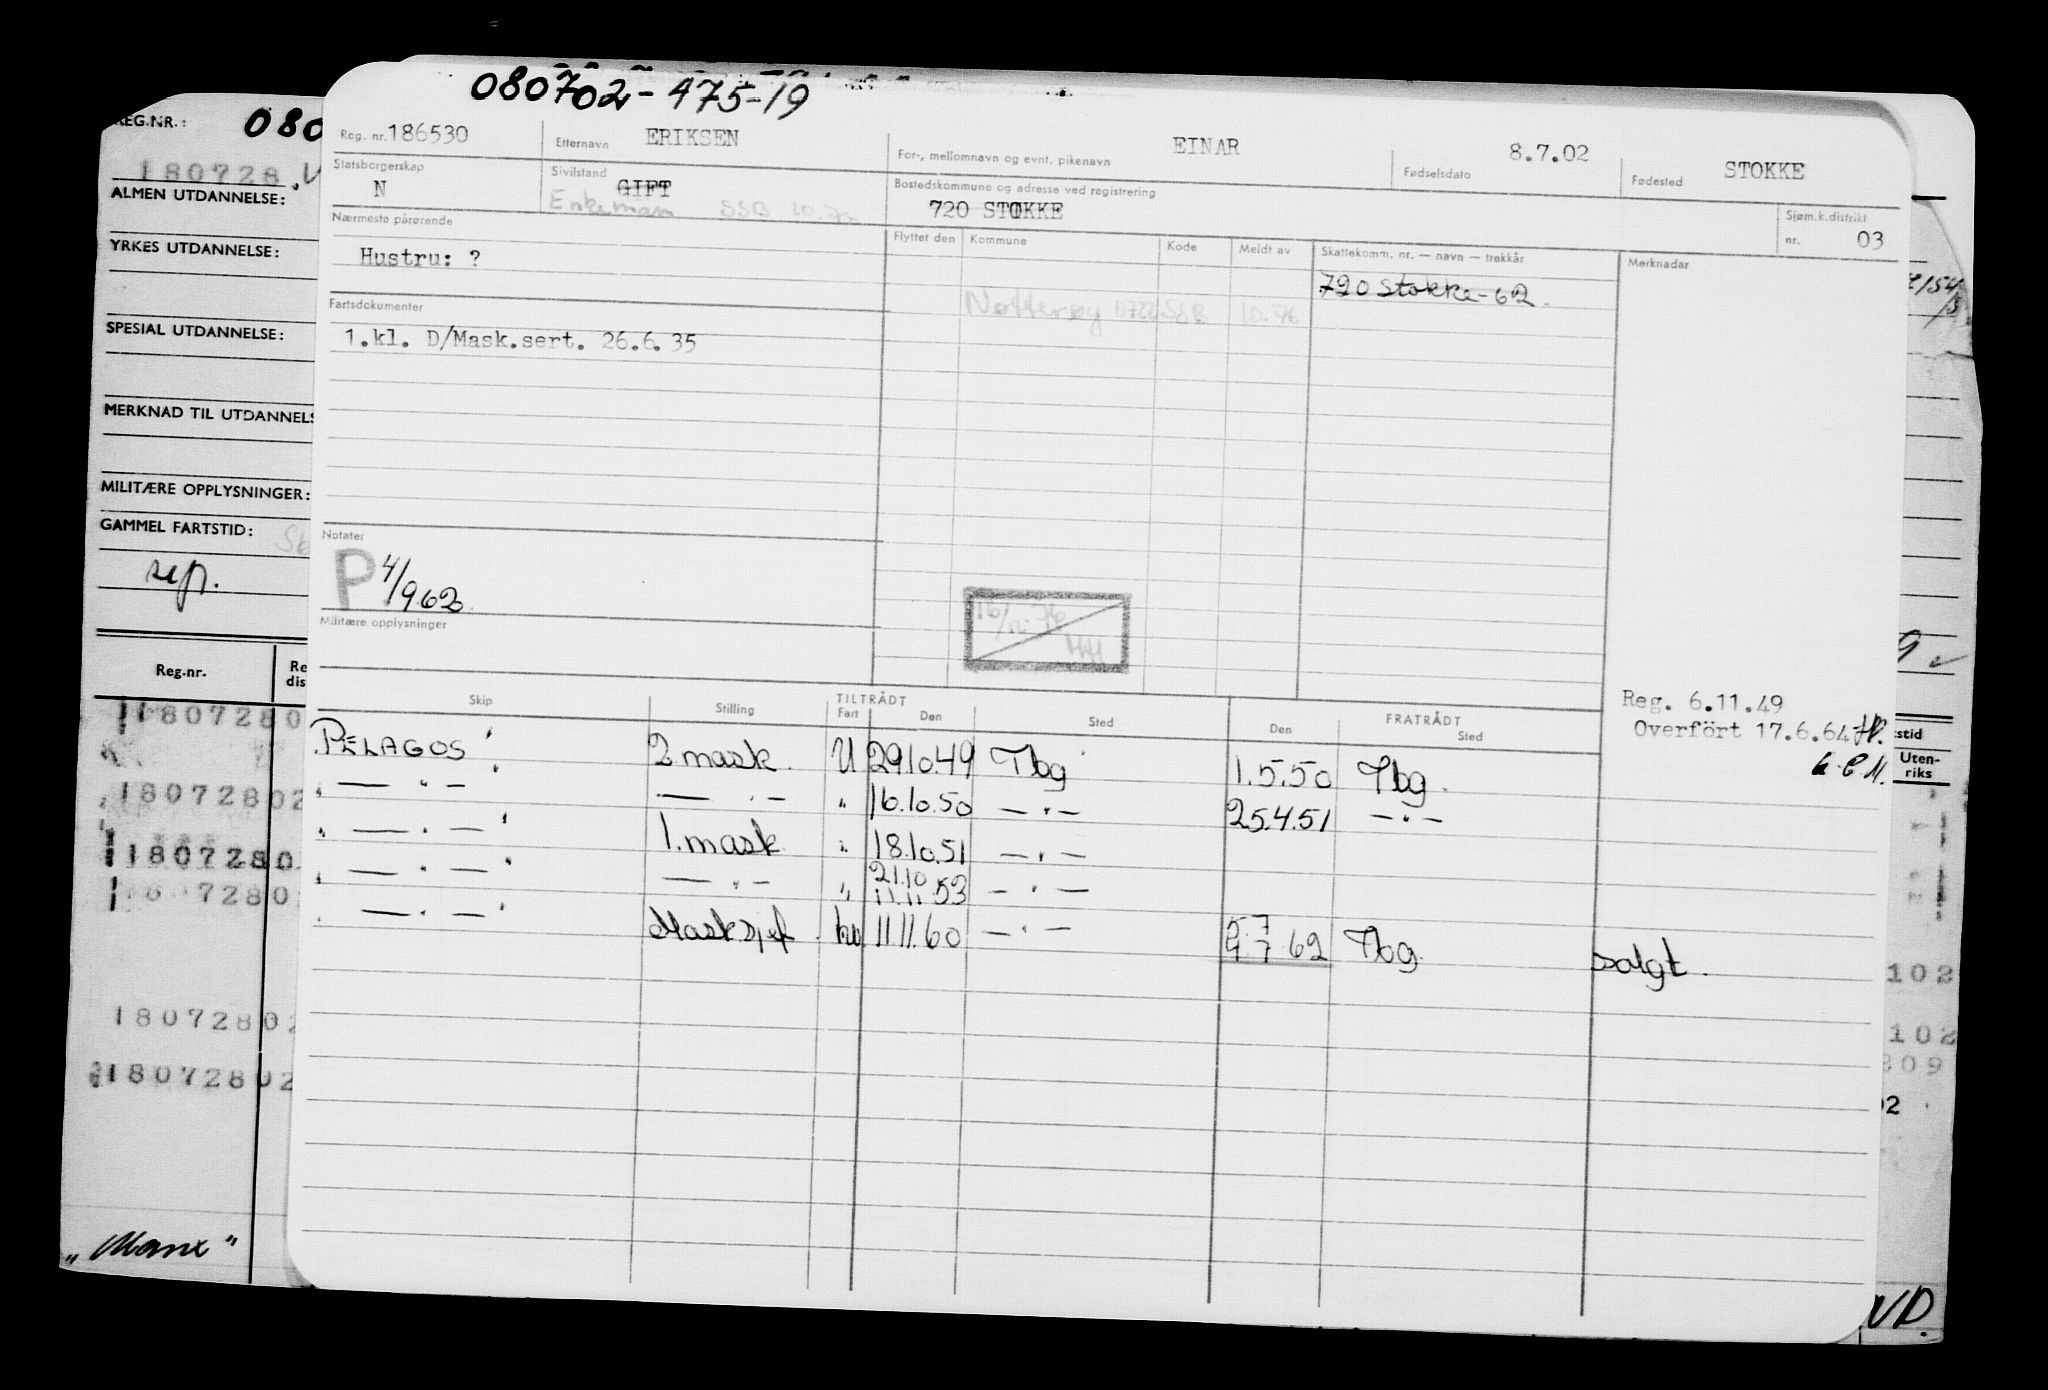 080702-475-19
REG.NR.: 080
180728
ALMEN UTDANNELSE:
YRKES UTDANNELSE:
SPESIAL UTDANNELSE:
MERKNAD TIL UTDANNELS
MILITÆRE OPPLYSNINGER:
GAMMEL FARTSTID:
Reg.nr. Re dis
1807280
1807280 2
1807280
7280
1807280 2
1807280 2
"Manx"
Reg. nr. 186530 Etternavn ERIKSEN For-, mellomnavn og evnt. pikenavn EINAR Fødselsdato 8.7.02 Fødested STOKKE
Statsborgerskap N Sivilstand GIFT Bostedskommune og adresse ved registrering 720 STOKKE
Enkemann SSB 10.76
Sjøm.k.distrikt nr. 03
Nærmeste pårørende Flyttet den Kommune Kode Meldt av Skattekomm. nr. — navn — trekkår Merknadar
Hustru: ?
720 Stokke-62.
Fartsdokumenter
Nøtterøy 0722 SSB 10.76
1.kl. D/Mask.sert. 26.6.35
Notater
P 4/962
16/12-76 HH
Militære opplysninger
Reg. 6.11.49
Overfört 17.6.64
Skip Stilling TILTRÅDT Fart Den Sted FRATRÅDT Den Sted
PELAGOS 2 mask. U 29.10.49 Tbg 1.5.50 Tbg.
— " — — " — " 16.10.50 — " — 25.4.51 — " —
— " — 1. mask " 18.10.51 — " —
— " — — " — " 21.10 11.11.53 — " —
— " — Masksjef hv 11.11.60 — " — 5.7 9.7.62 Tbg. solgt.
stid
Uten-
riks
102
102
809
02